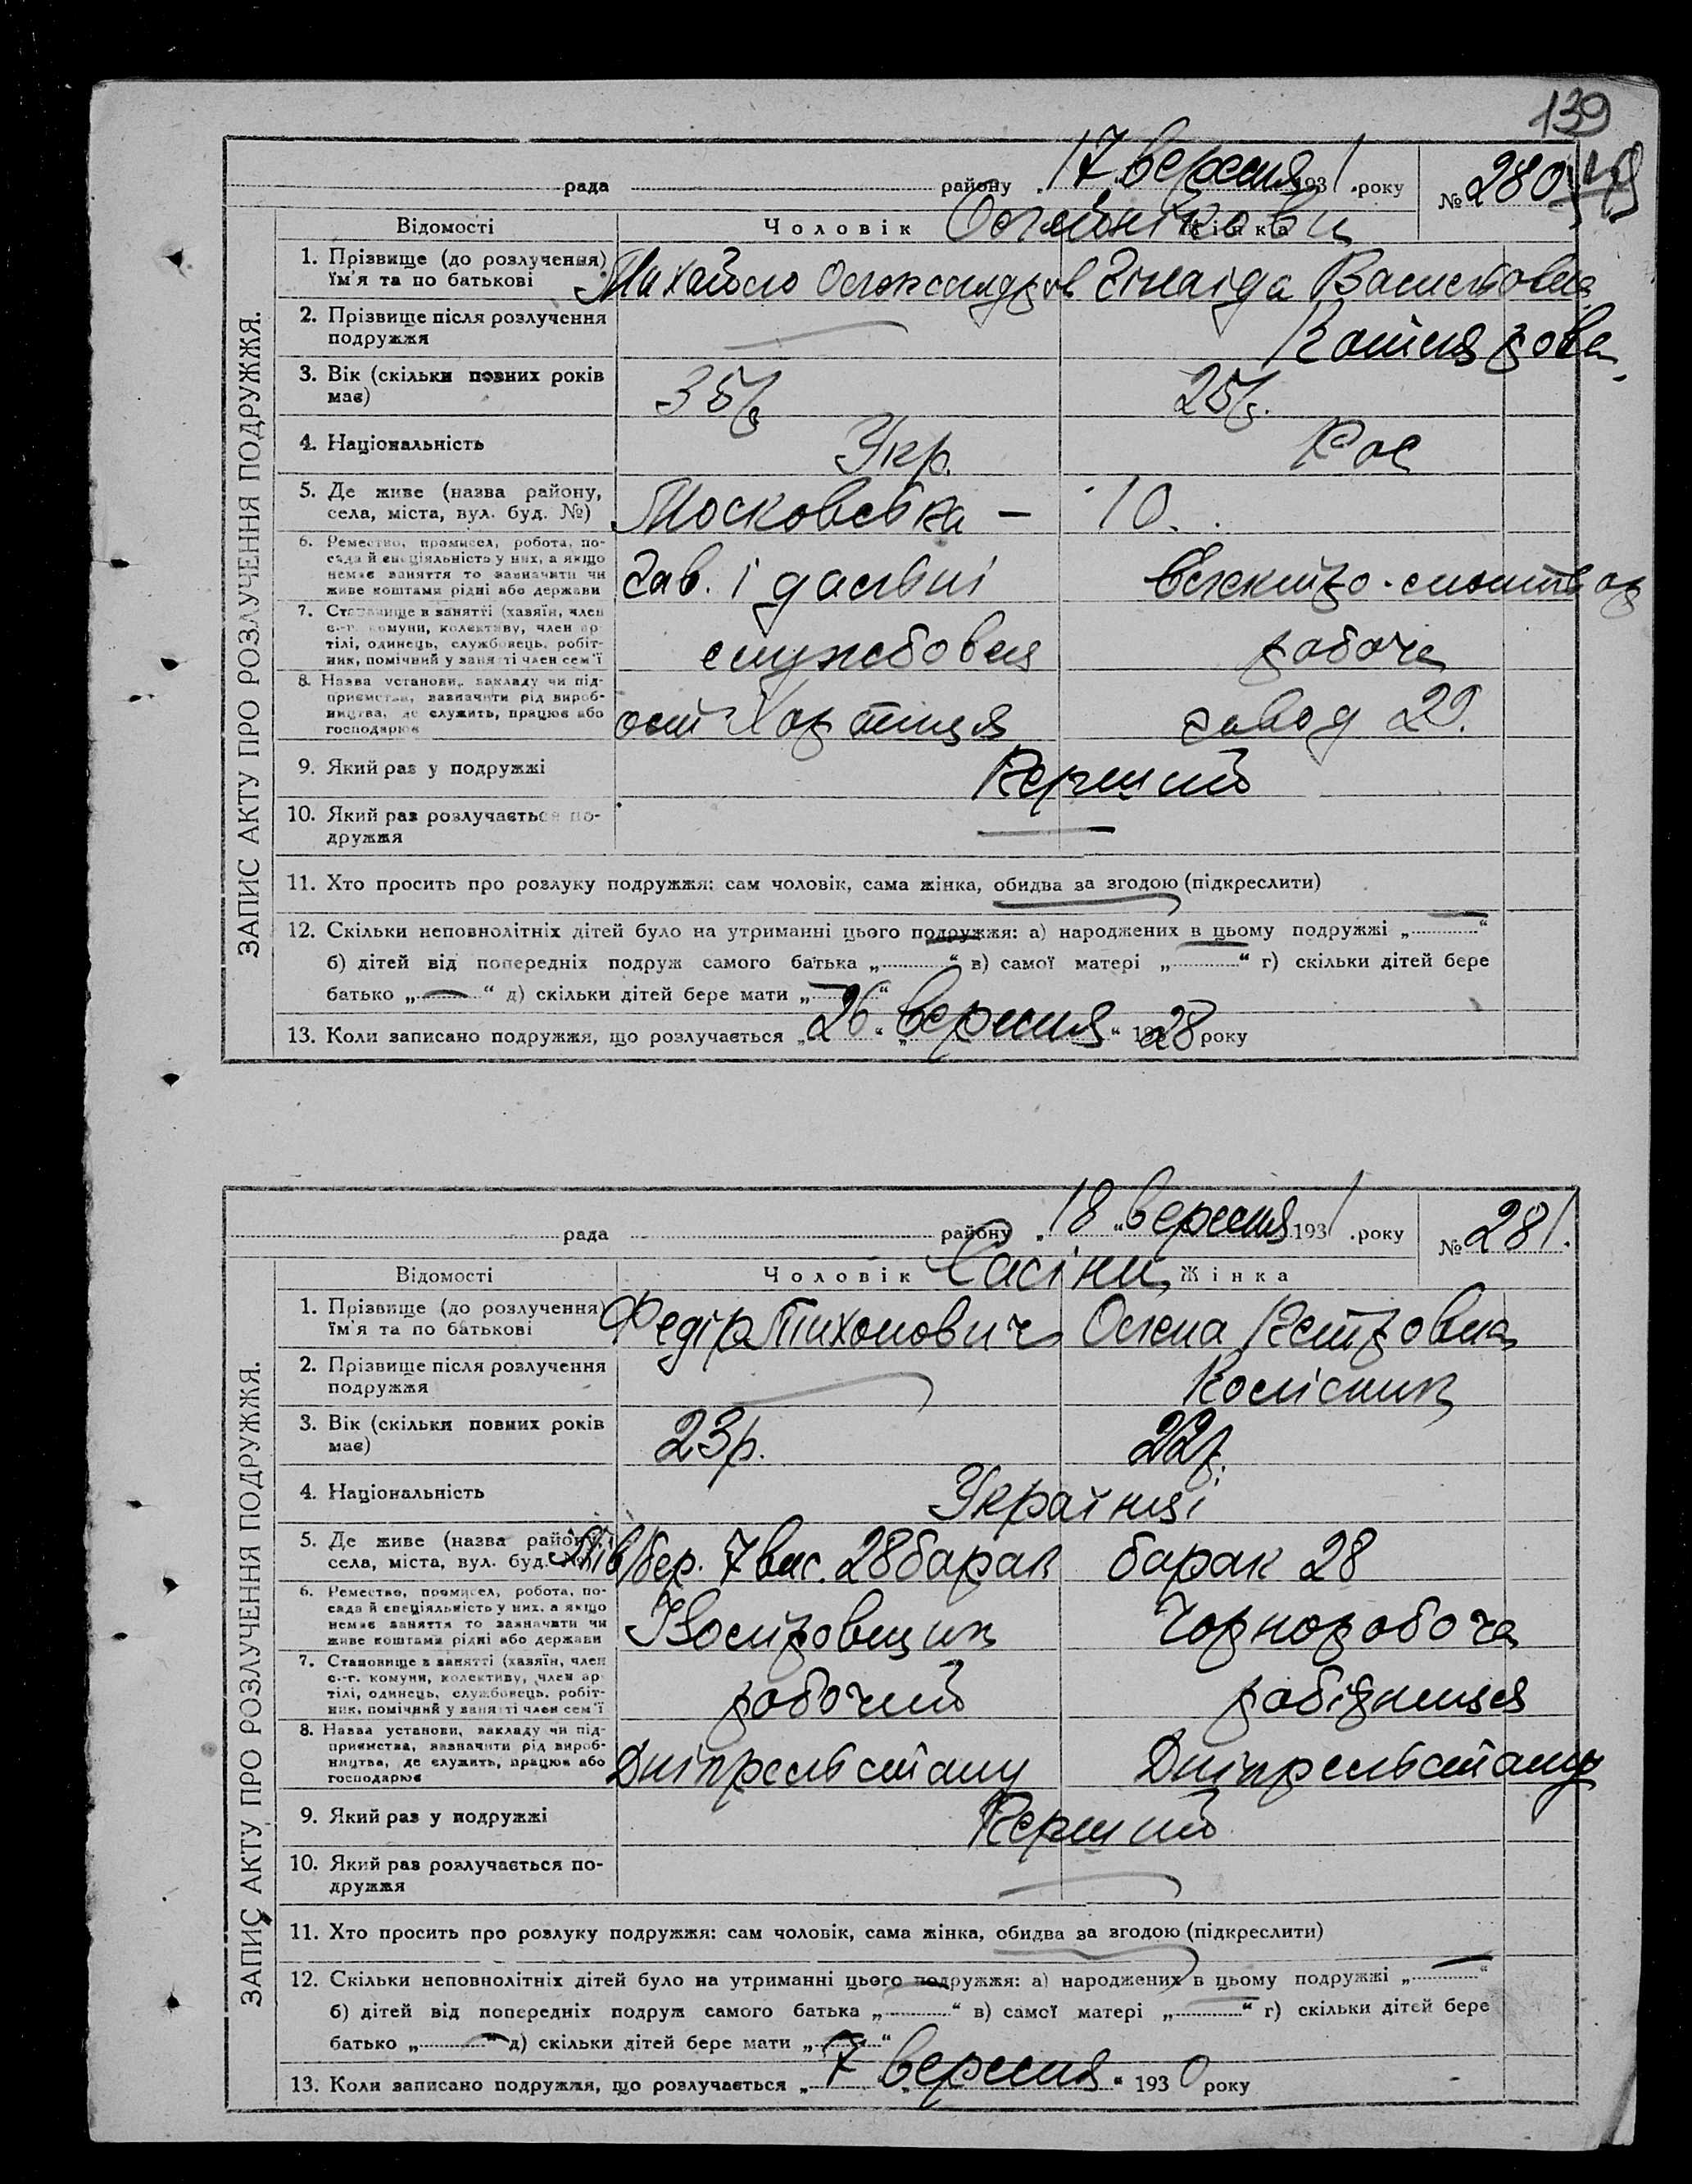 139
рада району „17 вересня 1931 року № 280
Відомості Чоловік Жінка
Олейнікови
1. Прізвище (до розлучення) Михайло Олександров Зінаїда Васильовна
їм'я та по батькові
2. Прізвище після розлучення
подружжя
3. Вік (скільки повних років 35 р 25 р.
має)
4. Національність Укр. Рос
5. Де живе (назва району, Московська — 10.
села, міста, вул. буд. №)
6. Ремество, промисел, робота, по-
сада й спеціяльність у них, а якщо Зав. їдальні електро-
немає заняття то зазначити чи
живе коштами рідні або держави
7. Становище в занятті (хазяїн, член
с.-г. комуни, колективу, член ар-
тілі, одинець, службовець, робіт- службовець робоча
ник, помічний у занятті член сем'ї
8. Назва установи, закладу чи під-
приємства, зазначити рід вироб-
ництва, де служить, працює або Хортиця завод 29.
господарює
9. Який раз у подружжі Перший
10. Який раз розлучається по-
дружжя
11. Хто просить про розлуку подружжя: сам чоловік, сама жінка, обидва за згодою (підкреслити)
12. Скільки неповнолітніх дітей було на утриманні цього подружжя: а) народжених в цьому подружжі „ “
б) дітей від попередніх подруж самого батька „ “ в) самої матері „ “ г) скільки дітей бере
батько „ “ д) скільки дітей бере мати „ “
13. Коли записано подружжя, що розлучається „26“ „вересня“ 1928 року
ЗАПИС АКТУ ПРО РОЗЛУЧЕННЯ ПОДРУЖЖЯ.
рада району „18 „вересня 1931 року № 281.
Відомості Чоловік Жінка
Сасіни
1. Прізвище (до розлучення) Федір Тихонович Олена Петровна
їм'я та по батькові
2. Прізвище після розлучення Колісник
подружжя
3. Вік (скільки повних років 23 р. 22 р.
має)
4. Національність Українці
5. Де живе (назва району,
села, міста, вул. буд. Лів/бер. 7 вис. 28 барак барак 28
6. Ремество, промисел, робота, по-
сада й спеціяльність у них, а якщо Чорноробоча
немає заняття то зазначити чи
живе коштами рідні або держави
7. Становище в занятті (хазяїн, член
с.-г. комуни, колективу, член ар-
тілі, одинець, службовець, робіт- робочий робітниця
ник, помічний у занятті член сем'ї
8. Назва установи, закладу чи під-
приємства, зазначити рід вироб-
ництва, де служить, працює або Дніпрельстану Дніпрельстану
господарює
9. Який раз у подружжі Перший
10. Який раз розлучається по-
дружжя
11. Хто просить про розлуку подружжя: сам чоловік, сама жінка, обидва за згодою (підкреслити)
12. Скільки неповнолітніх дітей було на утриманні цього подружжя: а) народжених в цьому подружжі „ “
б) дітей від попередніх подруж самого батька „ “ в) самої матері „ “ г) скільки дітей бере
батько „ “ д) скільки дітей бере мати „ “
13. Коли записано подружжя, що розлучається „7 „вересня“ 1930 року
ЗАПИС АКТУ ПРО РОЗЛУЧЕННЯ ПОДРУЖЖЯ.